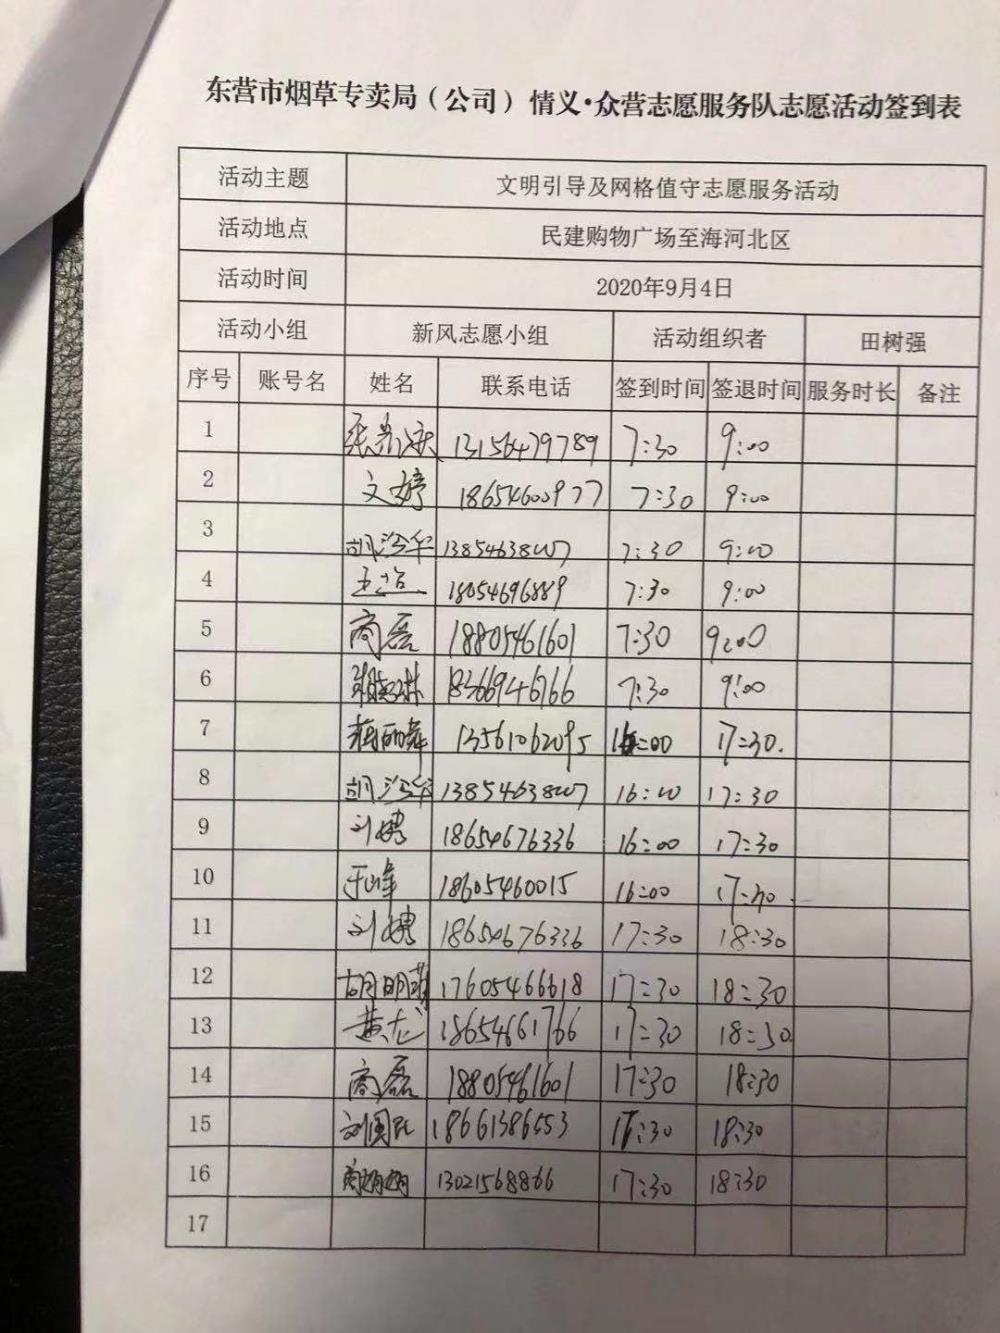 东营市烟草专卖局（公司）情义·众营志愿服务队志愿活动签到表
活动主题 文明引导及网格值守志愿服务活动
活动地点 民建购物广场至海河北区
活动时间 2020年9月4日
活动小组 新风志愿小组 活动组织者 田树强
序号 账号名 姓名 联系电话 签到时间 签退时间 服务时长 备注
1 13156479789 7:30 9:00
2 文婷 18654600977 7:30 9:00
3 7:30 9:00
4 18054696889 7:30 9:00
5 商磊 18805461601 7:30 9:00
6 18366946766 7:30 9:00
7 13561062095 16:00 17:30.
8 16:00 17:30
9 刘娉 18654676336 16:00 17:30
10 于峰 18605460015 16:00
11 刘娉 18654676336 17:30 18:30
12 胡明 17605466618 17:30 18:30
13 黄龙 18654661766 17:30 18:30
14 商磊 18805461601 17:30 18:30
15 刘国 18661386553 17:30 18:30
16 13021568866 17:30 18:30
17